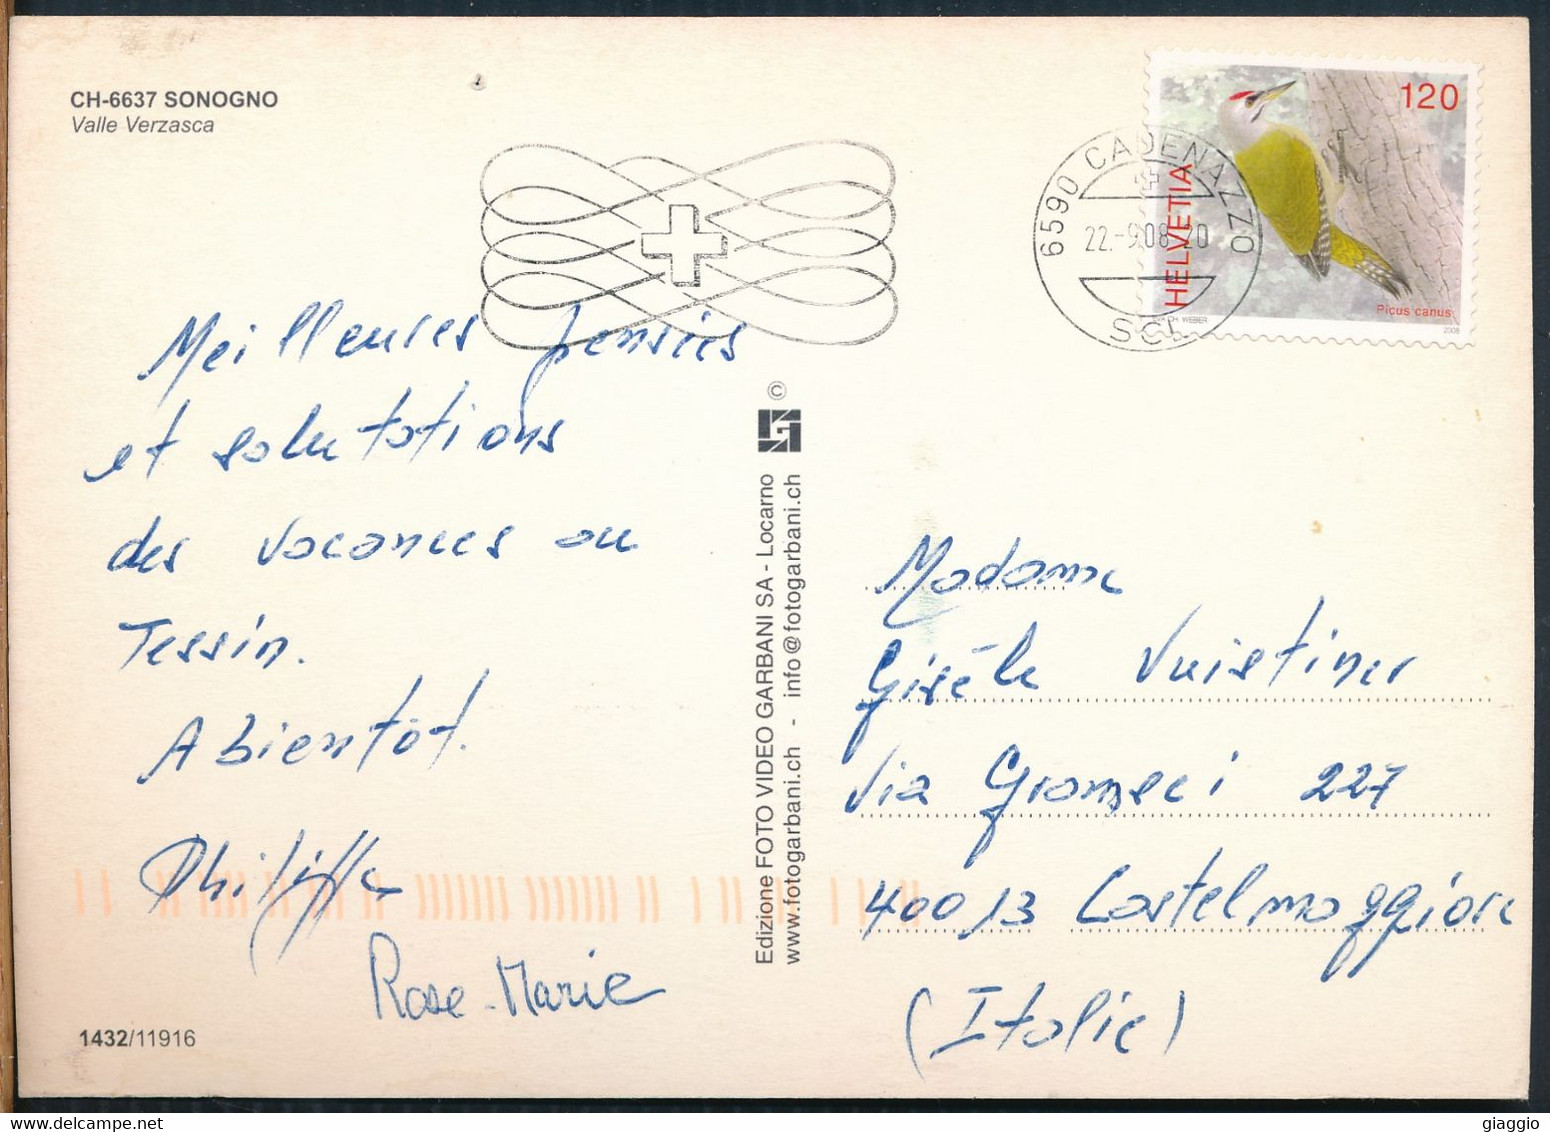 CH-6637 SONOGNO
Valle Verzasca
120
HELVETIA
Picus canus
2008
6590 CADENAZZO
22.-9.08-20
Meilleures pensées
et salutations
des vacances au
Tessin.
A bientôt.
Philippe
Rose-Marie
1432/11916
©
Edizione FOTO VIDEO GARBANI SA - Locarno
www.fotogarbani.ch - info@fotogarbani.ch
Madame
Gisèle Vuistiner
Via Gramsci 227
40013 Castelmaggiore
(Italie)
giaggio